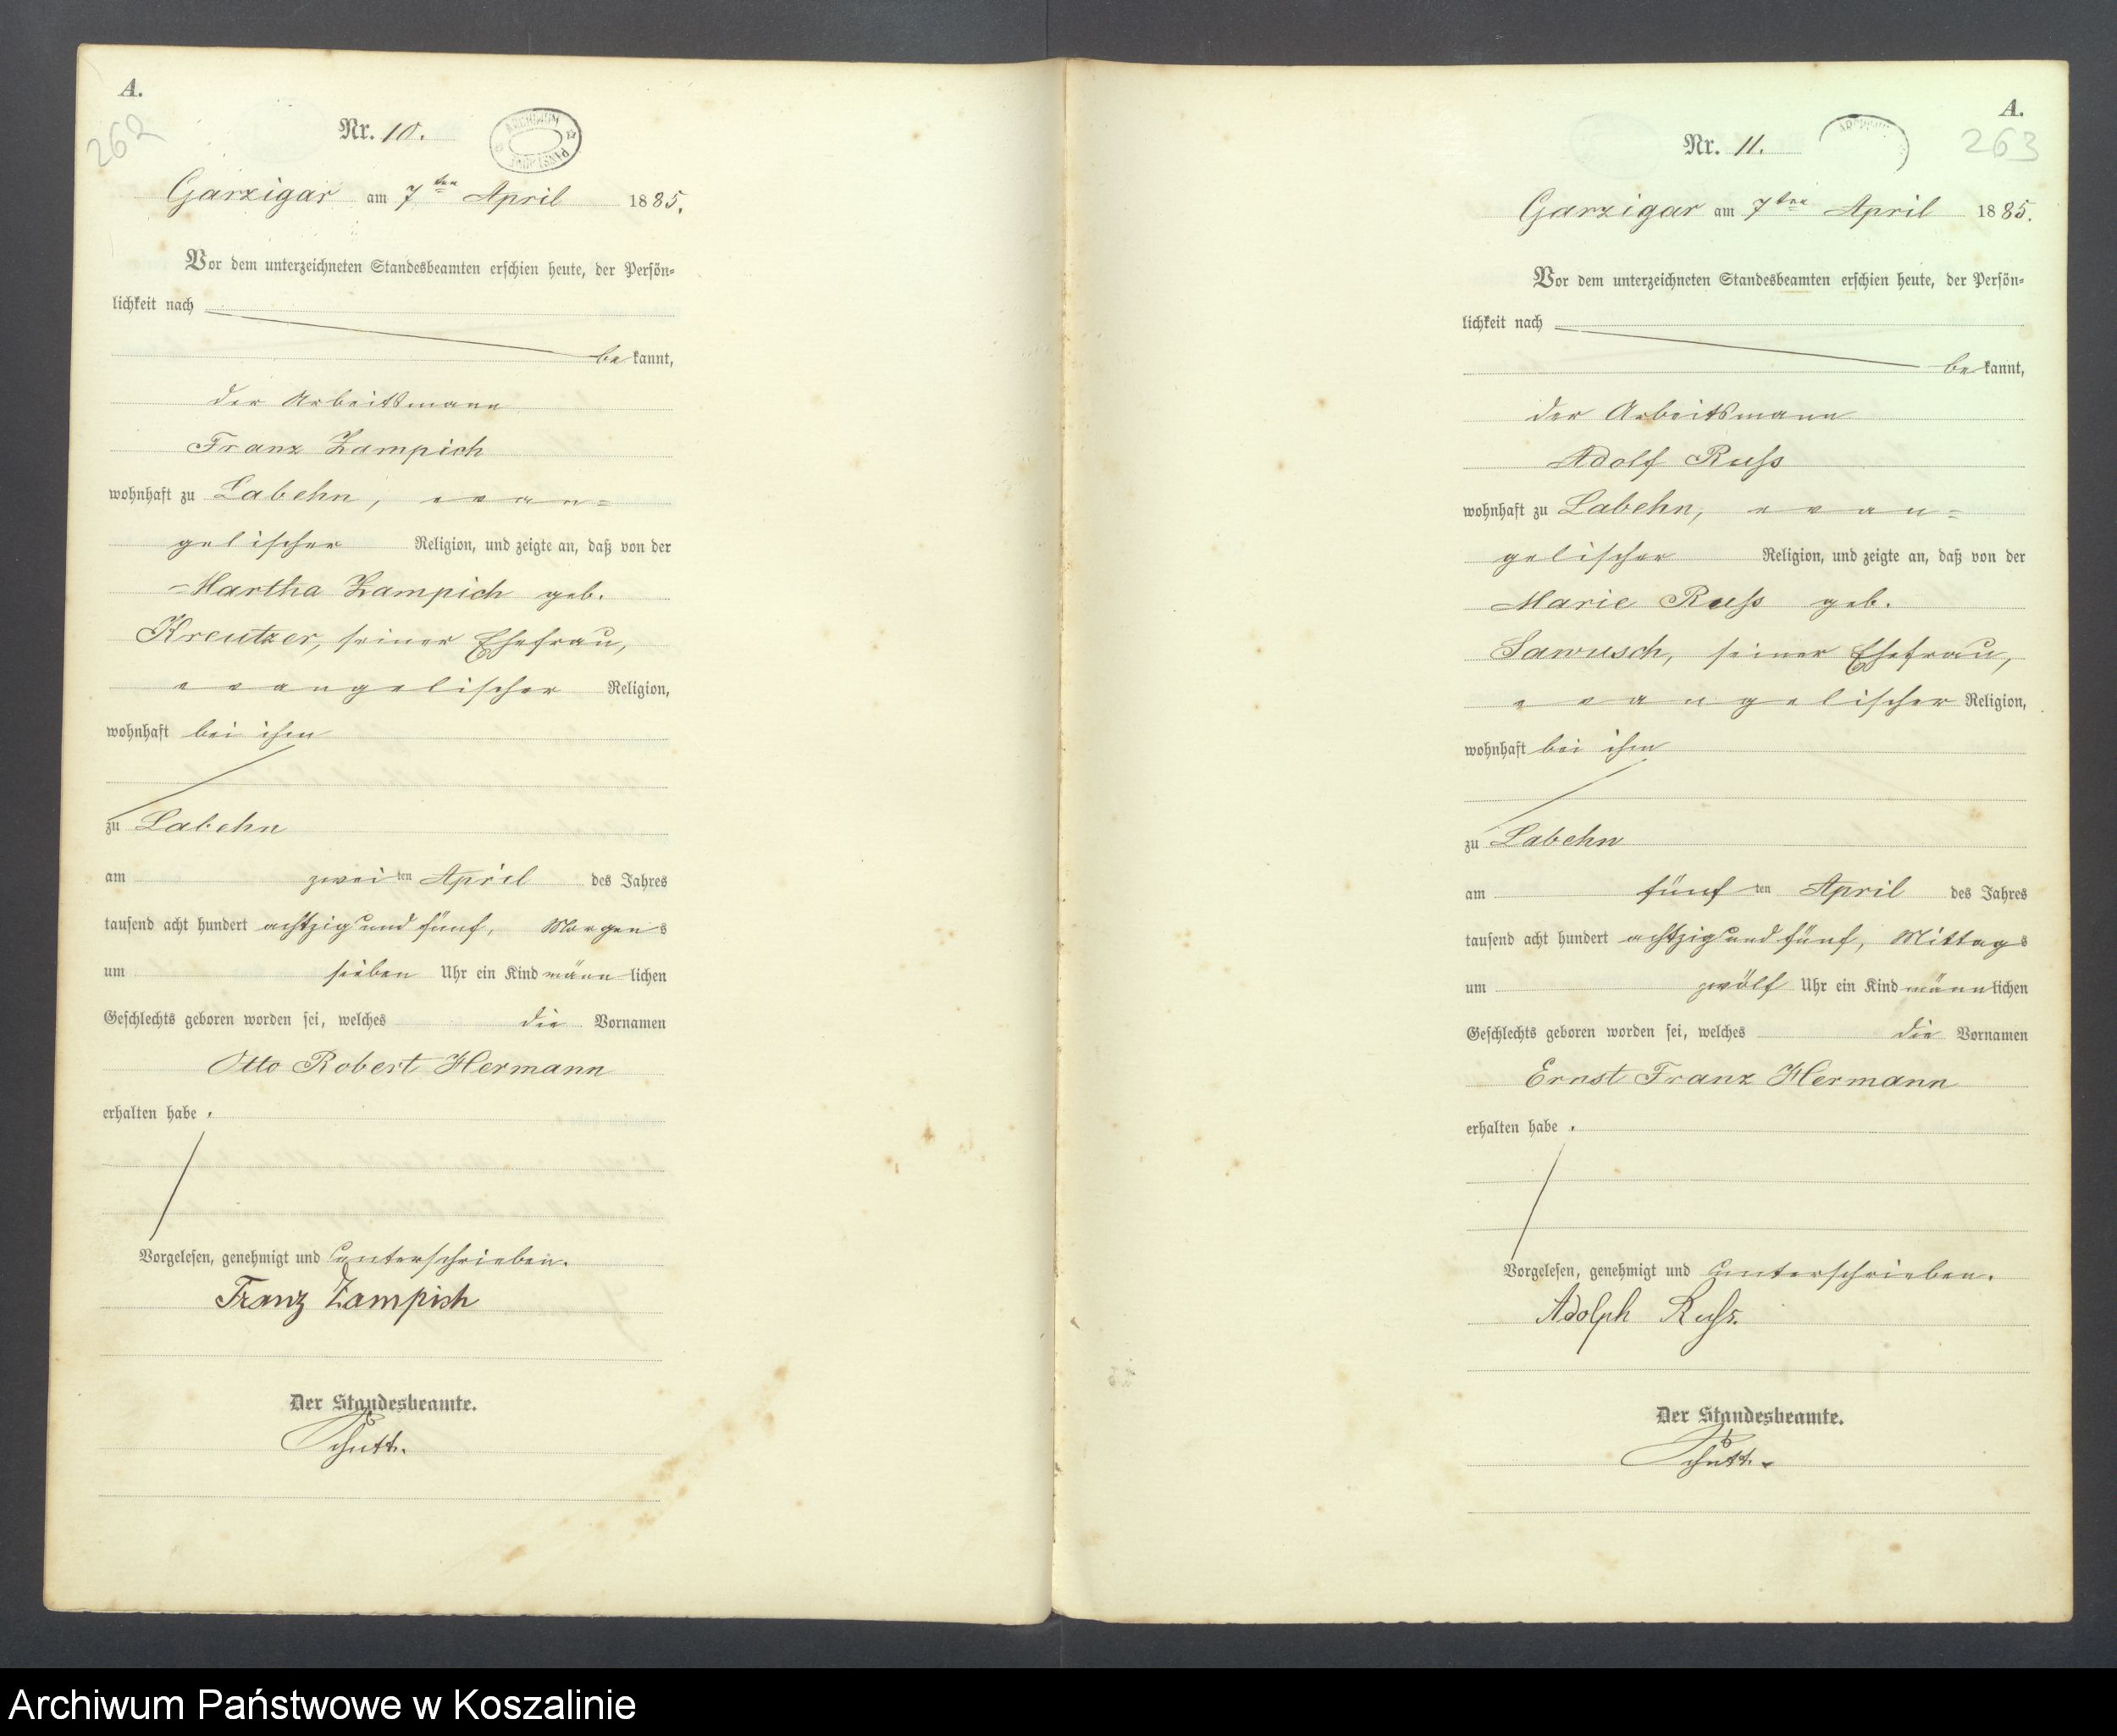 A.
262
Nr. 10.
ARCHIWUM PAŃSTWOWE
Garzigar am 7ten April 1885.
Vor dem unterzeichneten Standesbeamten erschien heute, der Persön=
lichkeit nach
bekannt,
der Arbeitsmann
Franz Zampich
wohnhaft zu Labehn, evan=
gelischer Religion, und zeigte an, daß von der
Martha Zampich geb.
Kreutzer, seiner Ehefrau,
evangelischer Religion,
wohnhaft bei ihm
zu Labehn
am zweiten April des Jahres
tausend acht hundert achtzig und fünf, Morgens
um sieben Uhr ein Kind männlichen
Geschlechts geboren worden sei, welches die Vornamen
Otto Robert Hermann
erhalten habe.
Vorgelesen, genehmigt und unterschrieben.
Franz Zampich
Der Standesbeamte.
Schütt.
A.
263
Nr. 11.
Garzigar am 7ten April 1885.
Vor dem unterzeichneten Standesbeamten erschien heute, der Persön=
lichkeit nach
bekannt,
der Arbeitsmann
Adolf Ruß
wohnhaft zu Labehn, evan=
gelischer Religion, und zeigte an, daß von der
Marie Ruß geb.
Sawusch, seiner Ehefrau,
evangelischer Religion,
wohnhaft bei ihm
zu Labehn
am fünften April des Jahres
tausend acht hundert achtzig und fünf, Mittags
um zwölf Uhr ein Kind männlichen
Geschlechts geboren worden sei, welches die Vornamen
Ernst Franz Hermann
erhalten habe.
Vorgelesen, genehmigt und unterschrieben.
Adolph Ruß.
Der Standesbeamte.
Schütt.
Archiwum Państwowe w Koszalinie